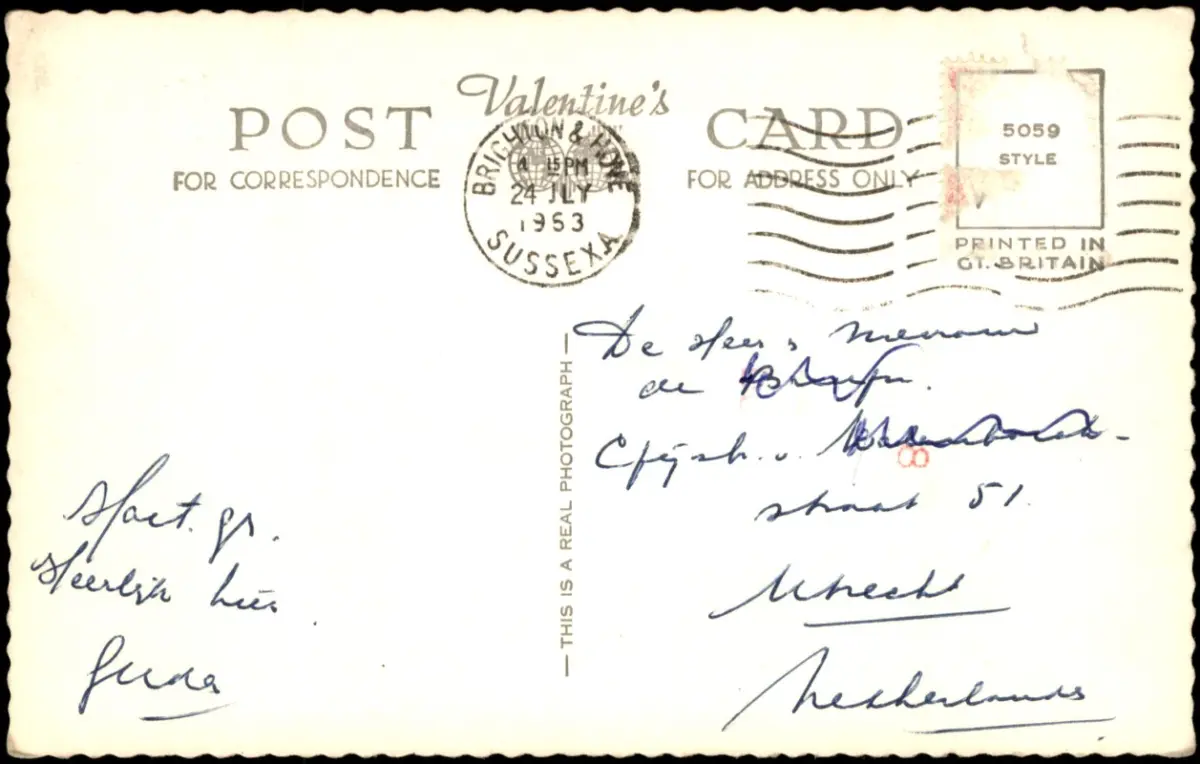 POST Valentine's CARD
FOR CORRESPONDENCE
FOR ADDRESS ONLY
BRIGHTON & HOVE
15PM
24 JLY
1953
SUSSEX A
5059
STYLE
PRINTED IN
GT. BRITAIN
THIS IS A REAL PHOTOGRAPH
De Heer & Mevrouw
de
straat 51.
Utrecht
Netherlands
Hart. gr.
Heerlijk hier.